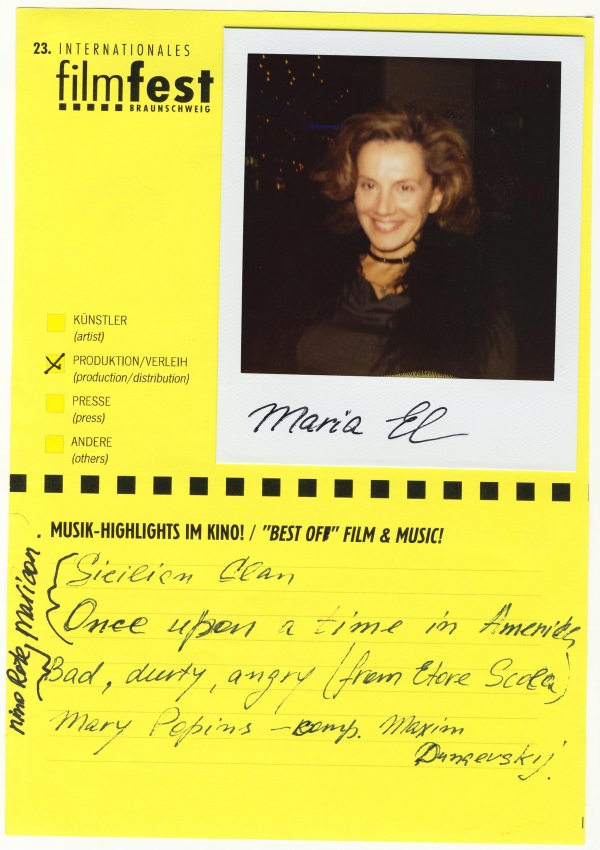 23. INTERNATIONALES
filmfest
BRAUNSCHWEIG
KÜNSTLER
(artist)
PRODUKTION/VERLEIH
(production/distribution)
PRESSE
(press)
ANDERE
(others)
Maria El
MUSIK-HIGHLIGHTS IM KINO! / "BEST OFF" FILM & MUSIC!
Sicilian Clan
Once upon a time in America
Bad, durty, angry (from Etore Scola)
Mary Popins - comp. Maxim
Dunaevskij.
Nino Rota, Maricon.